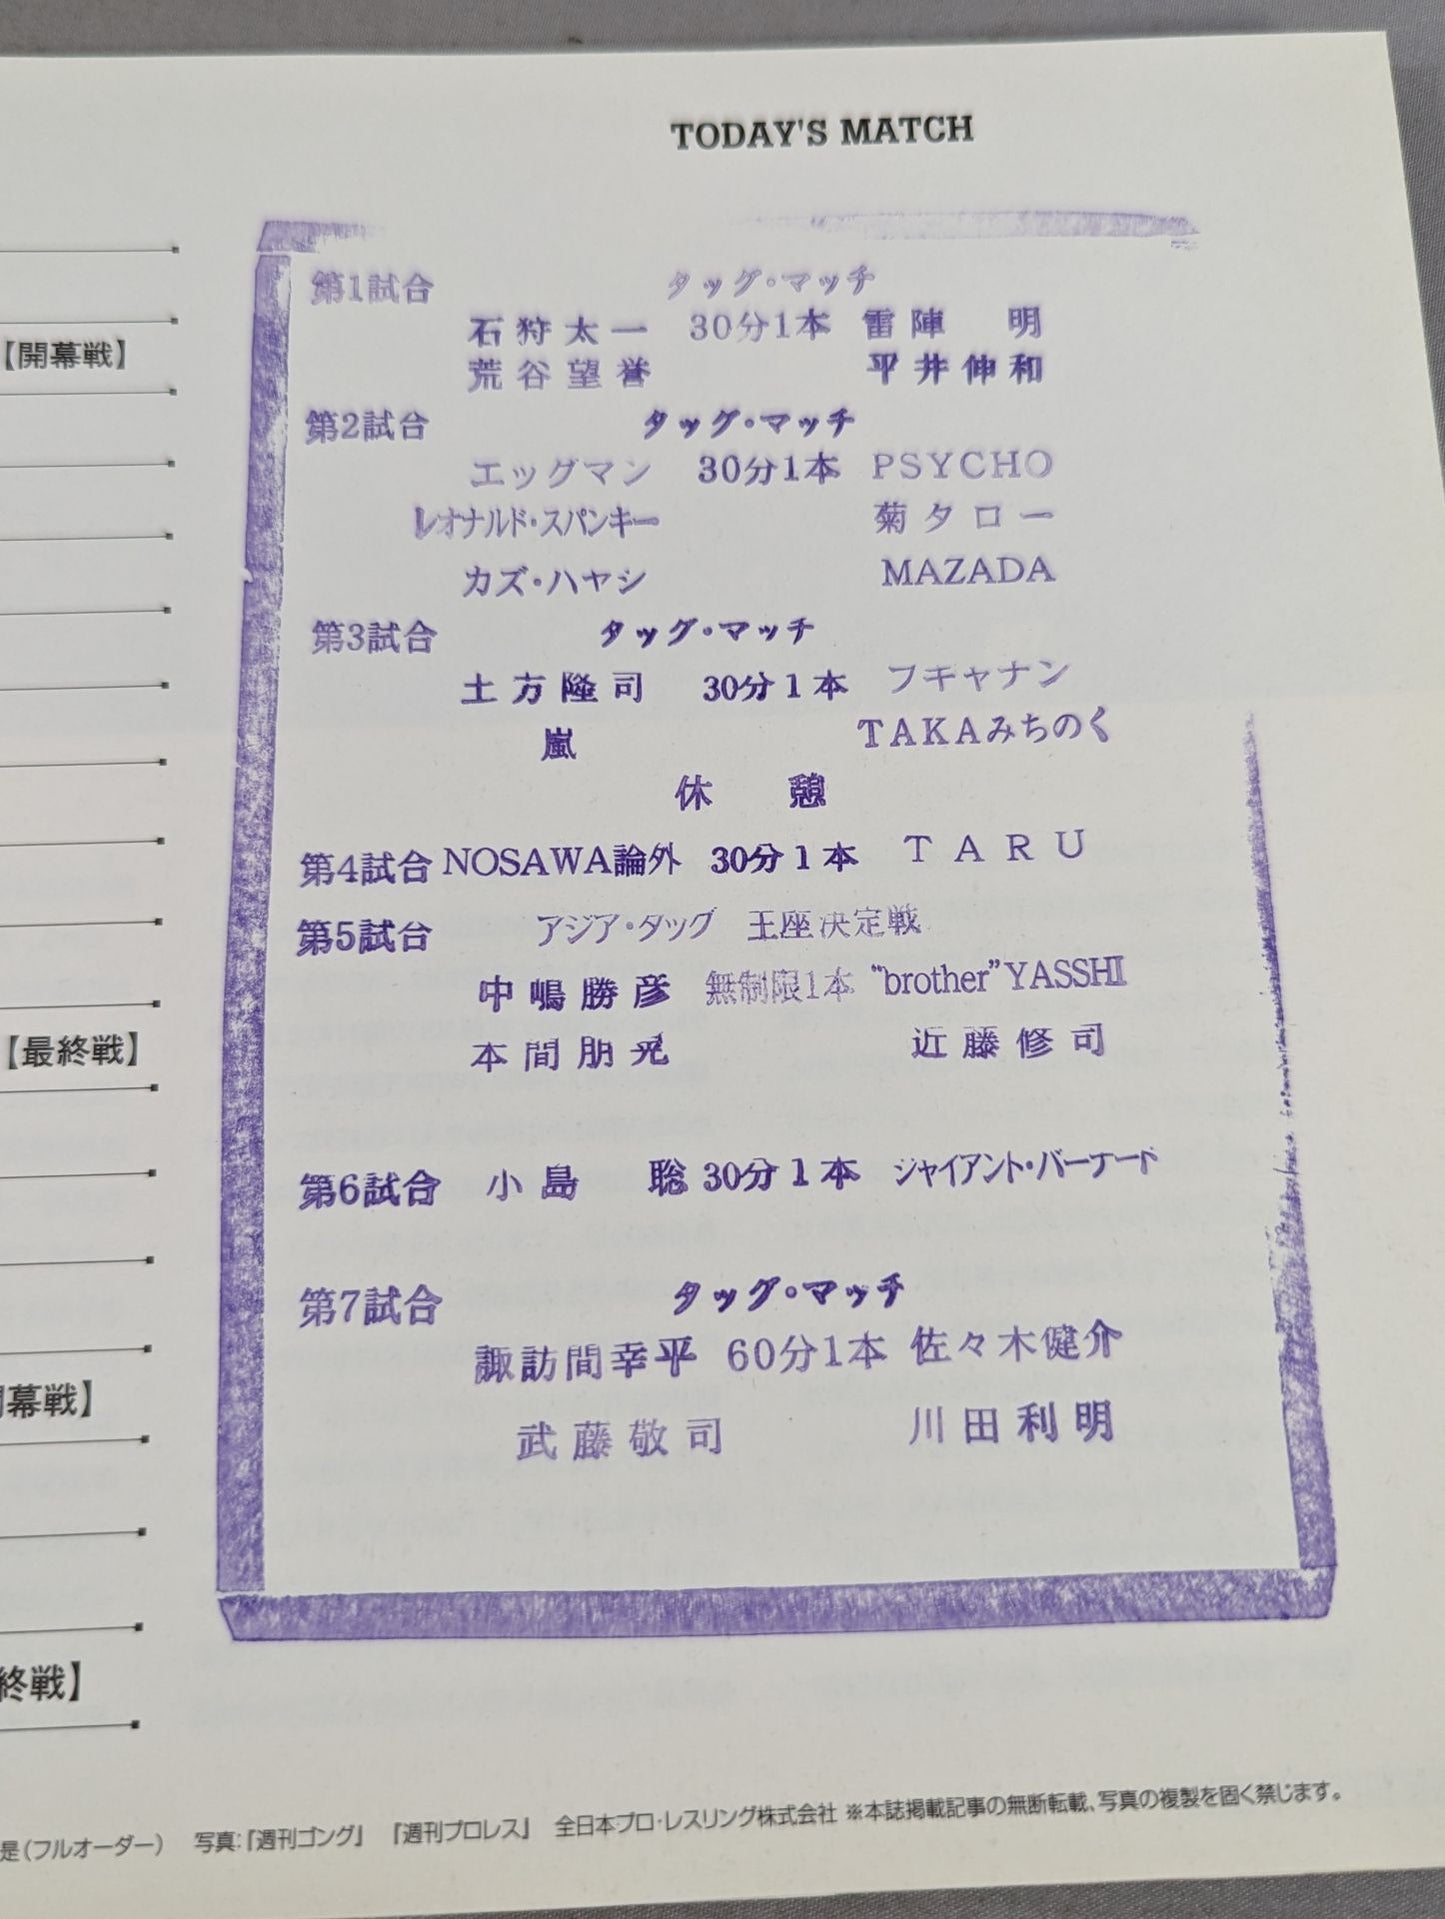 TODAY'S MATCH
第1試合 タッグ・マッチ
石狩太一 30分1本 雷陣 明
荒谷望誉 平井伸和
第2試合 タッグ・マッチ
エッグマン 30分1本 PSYCHO
レオナルド・スパンキー 菊タロー
カズ・ハヤシ MAZADA
第3試合 タッグ・マッチ
土方隆司 30分1本 フキャナン
嵐 TAKAみちのく
休 憩
第4試合 NOSAWA論外 30分1本 TARU
第5試合 アジア・タッグ 王座決定戦
中嶋勝彦 無制限1本 “brother”YASSHI
本間朋晃 近藤修司
第6試合 小島 聡 30分1本 ジャイアント・バーナード
第7試合 タッグ・マッチ
諏訪間幸平 60分1本 佐々木健介
武藤敬司 川田利明
【開幕戦】
【最終戦】
幕戦】
終戦】
是(フルオーダー) 写真:『週刊ゴング』 『週刊プロレス』 全日本プロ・レスリング株式会社 ※本誌掲載記事の無断転載、写真の複製を固く禁じます。